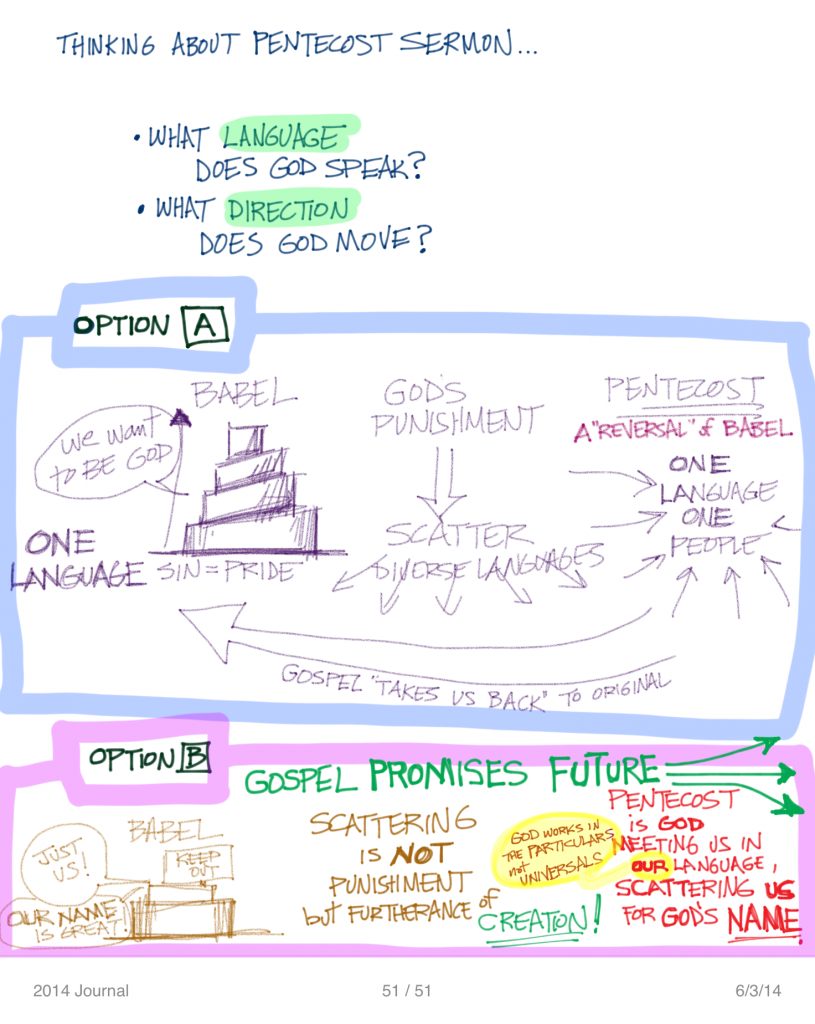 THINKING ABOUT PENTECOST SERMON...
• WHAT LANGUAGE
DOES GOD SPEAK?
• WHAT DIRECTION
DOES GOD MOVE?
OPTION A
BABEL
We want
to BE GOD
ONE
LANGUAGE
SIN = PRIDE
GOD'S
PUNISHMENT
SCATTER
DIVERSE LANGUAGES
PENTECOST
A "REVERSAL" of BABEL
ONE
LANGUAGE
ONE
PEOPLE
GOSPEL "TAKES US BACK" TO ORIGINAL
OPTION B
GOSPEL PROMISES FUTURE
BABEL
JUST
US!
KEEP
OUT
OUR NAME
IS GREAT!
SCATTERING
IS NOT
PUNISHMENT
but FURTHERANCE of
CREATION!
GOD WORKS IN
THE PARTICULARS
not
UNIVERSALS
PENTECOST
is GOD
MEETING US IN
OUR LANGUAGE,
SCATTERING US
FOR GOD'S NAME
2014 Journal
51 / 51
6/3/14